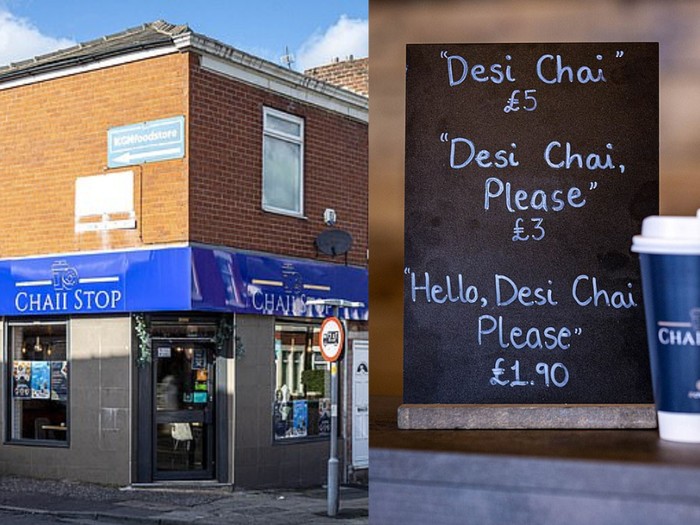 KQMfoodstore
CHAII STOP
CHAII STOP
"Desi Chai"
£5
"Desi Chai,
Please"
£3
"Hello, Desi Chai
Please"
£1.90
CHAI